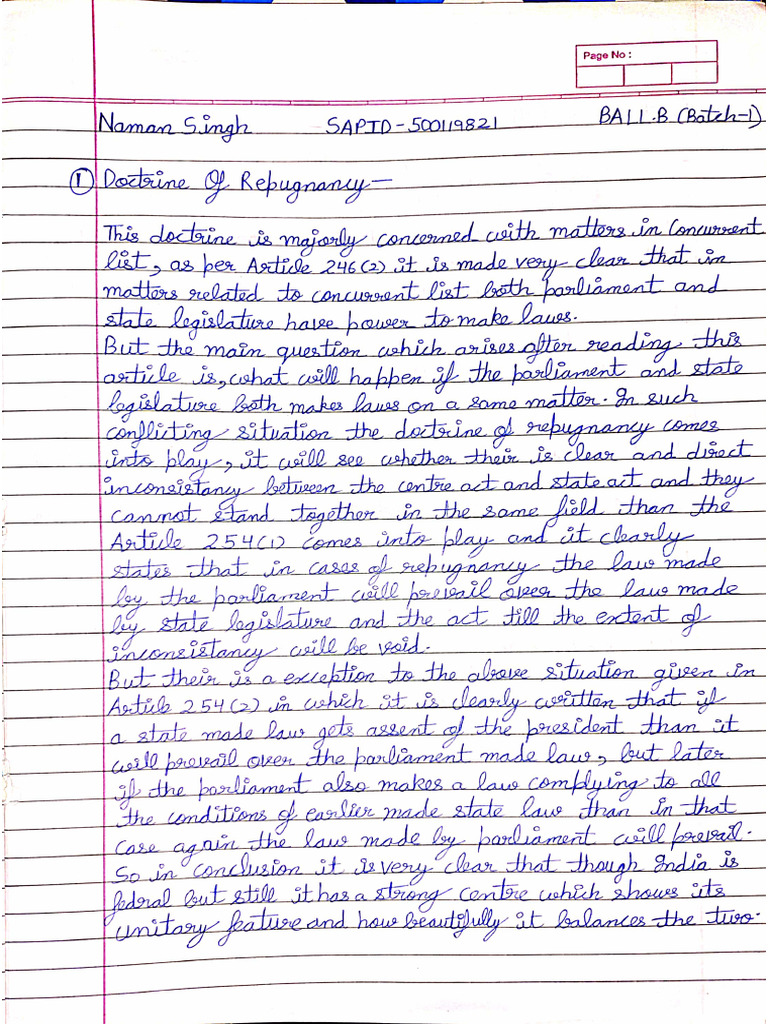 Page No :
Naman Singh SAPID-500119821 BALL.B (Batch-1)
① Doctrine Of Repugnancy—
This doctrine is majorly concerned with matters in Concurrent
list, as per Article 246(2) it is made very clear that in
matters related to concurrent list both parliament and
state legislature have power to make laws.
But the main question which arises after reading this
article is, what will happen if the parliament and state
legislature both makes laws on a same matter. In such
conflicting situation the doctrine of repugnancy comes
into play, it will see whether their is clear and direct
inconsistancy between the centre act and state act and they
cannot stand together in the same field than the
Article 254(1) comes into play and it clearly
states that in cases of repugnancy the law made
by the parliament will prevail over the law made
by state legislature and the act till the extent of
inconsistancy will be void.
But their is a exception to the above situation given in
Article 254(2) in which it is clearly written that if
a state made law gets assent of the president than it
will prevail over the parliament made law, but later
if the parliament also makes a law complying to all
the conditions of earlier made state law than in that
case again the law made by parliament will prevail.
So in conclusion it is very clear that though India is
fedral but still it has a strong centre which shows its
unitary feature and how beautifully it balances the two.